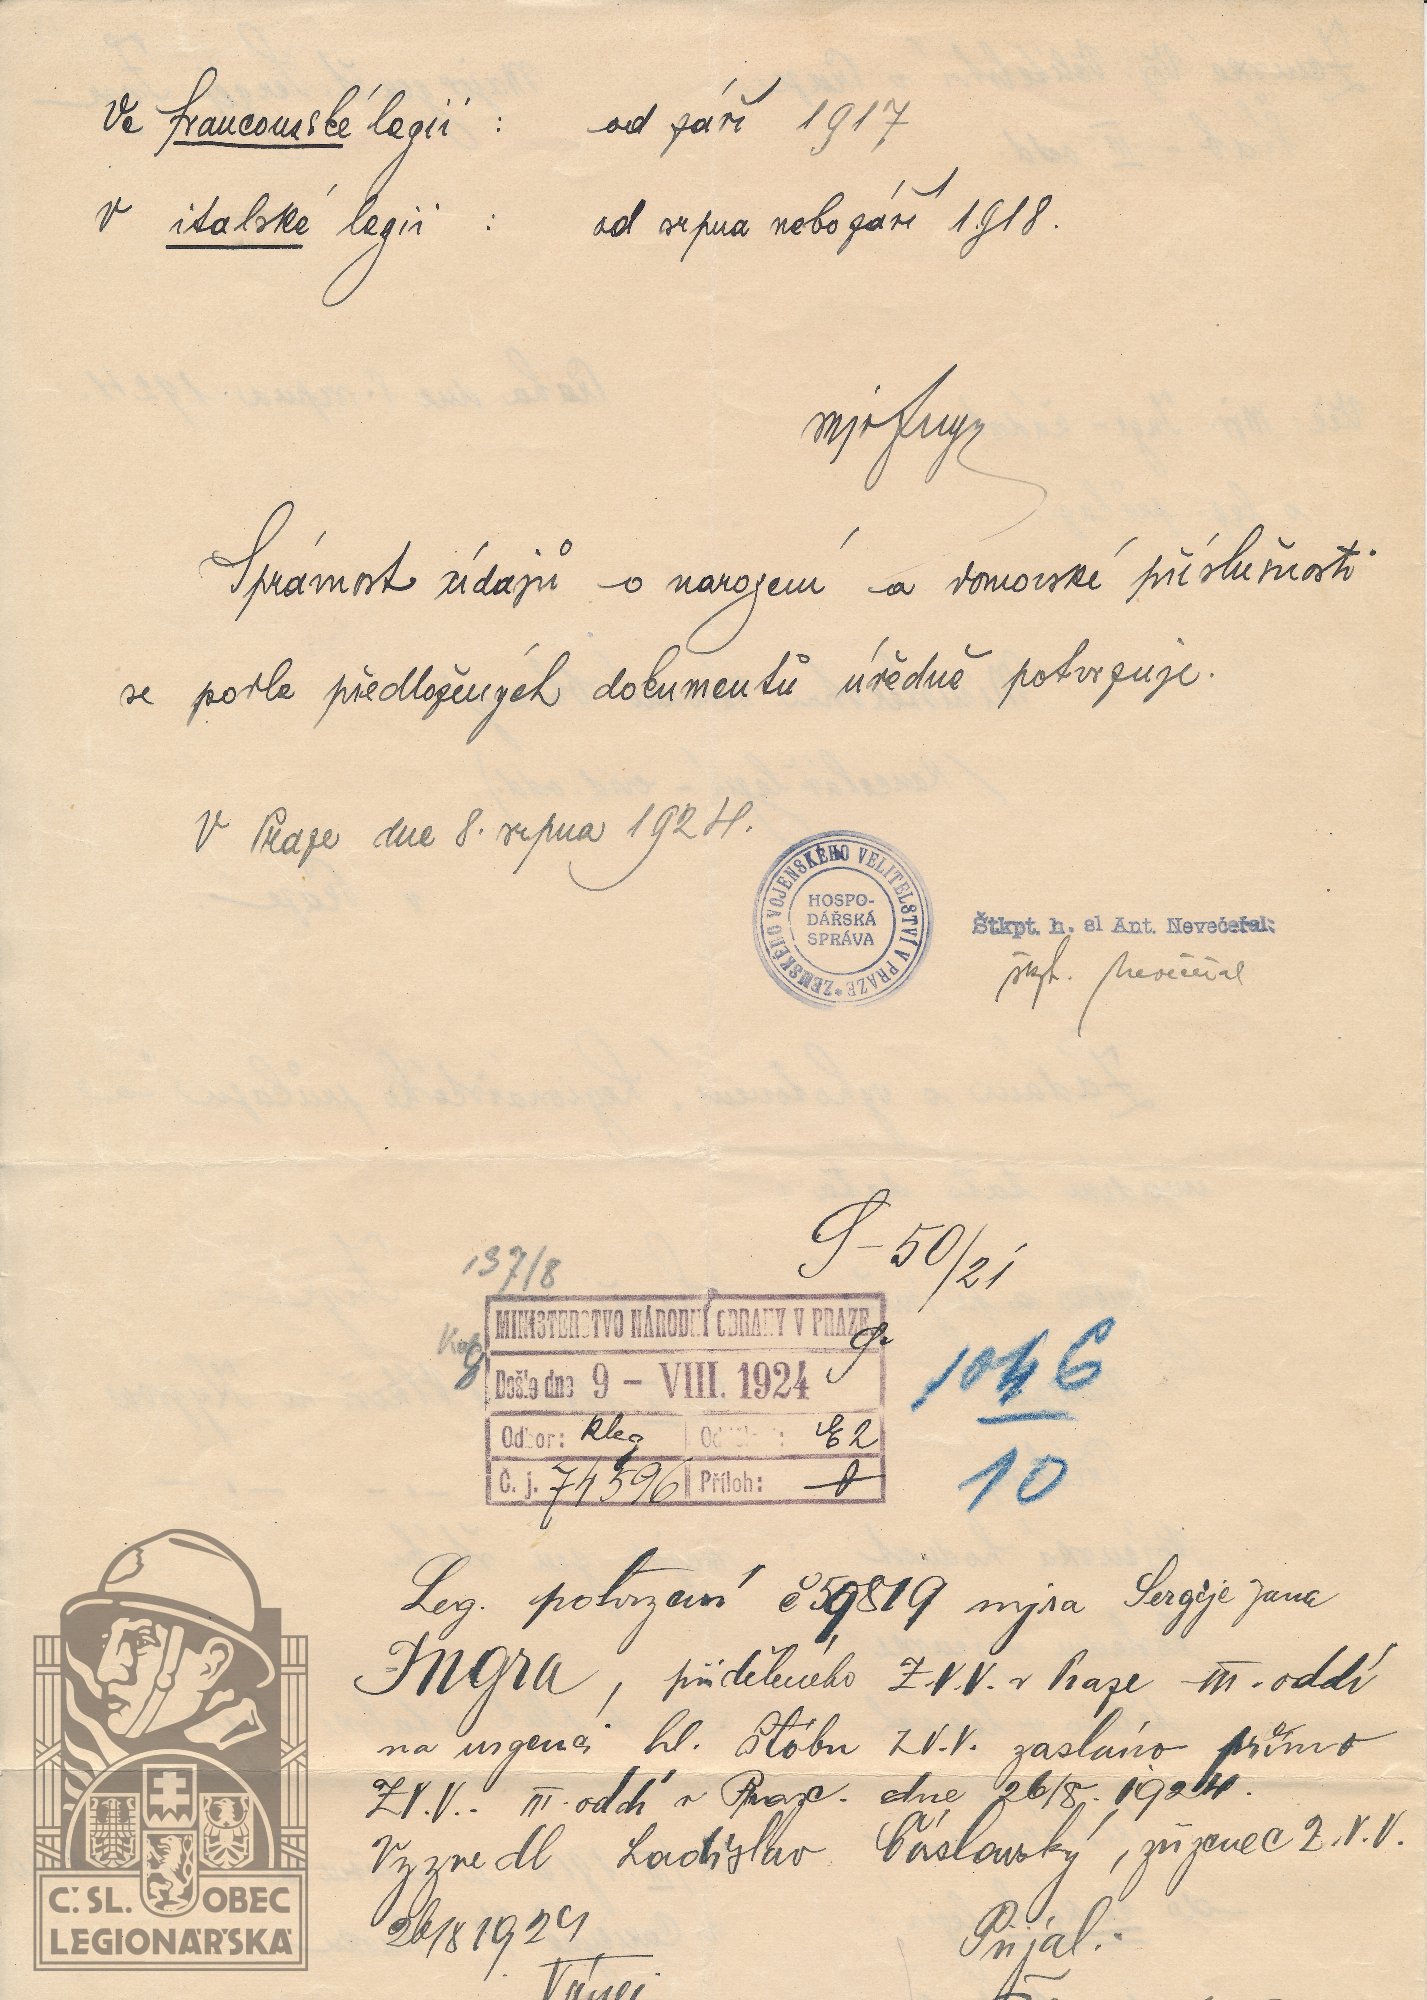 Ve francouzské legii : od září 1917
V italské legii : od srpna nebo září 1918.
mjr Ingr
Správnost údajů o narození a domovské příslušnosti
se podle předložených dokumentů úředně potvrzuje.
V Praze dne 8. srpna 1924.
ZEMSKÉHO VOJENSKÉHO VELITELSTVÍ V PRAZE *
HOSPO-
DÁŘSKÁ
SPRÁVA
Štkpt. h. sl Ant. Nevečeřal:
škpt. Nevečeřal
S-50/21
137/8
MINISTERSTVO NÁRODNÍ OBRANY V PRAZE
Došlo dne 9 - VIII. 1924
Odbor: kleg E2
Č. j. 74596 Příloh:
1046
10
Leg. potvrzení č 59819 mjra Sergěje Jana
Ingra, přiděleného Z.V.V. v Praze III. oddí
na urgenci hl. štábu Z.V.V. zasláno přímo
Z.V.V. III. oddí v Praze. dne 26/8. 1924.
Vyzvedl Ladislav Čáslavský, zřízenec Z.V.V.
26/8 1924
Přijal:
Č.SL. OBEC
LEGIONÁŘSKÁ